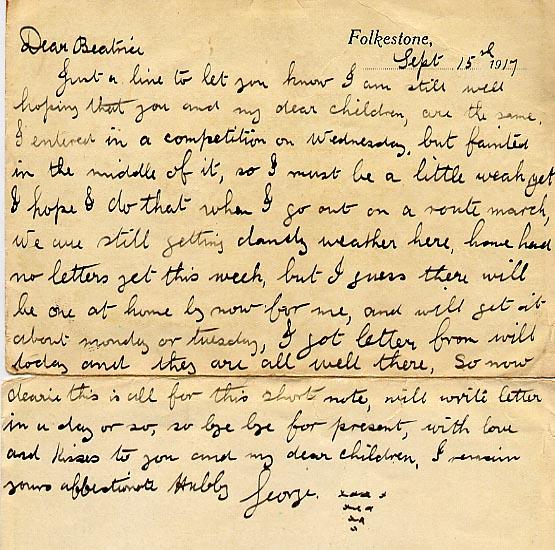 Folkestone,
Dear Beatrice
Sept 15th 1917
Just a line to let you know I am still well
hoping that you and my dear children, are the same.
I entered in a competition on Wednesday, but fainted
in the middle of it, so I must be a little weak yet
I hope I do that when I go out on a route march,
We are still getting dandy weather here, have had
no letters yet this week, but I guess there will
be one at home by now for me, and will get it
about monday or tuesday, I got letter from will
today and they are all well there, So now
dearie this is all for this short note, will write letter
in a day or so, so bye bye for present, with love
and kisses to you and my dear children, I remain
yours affectionate Hubby George. xxxx
xxx
xx
x